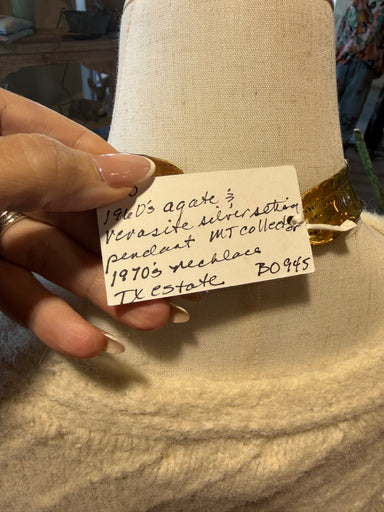 1960's agate &
verasite silver setting
pendant MT collector
1970's necklace
TX estate BO945